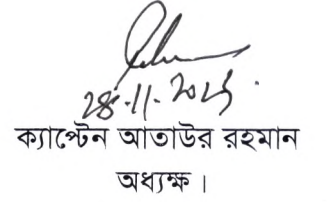 28-11-2025
ক্যাপ্টেন আতাউর রহমান
অধ্যক্ষ।